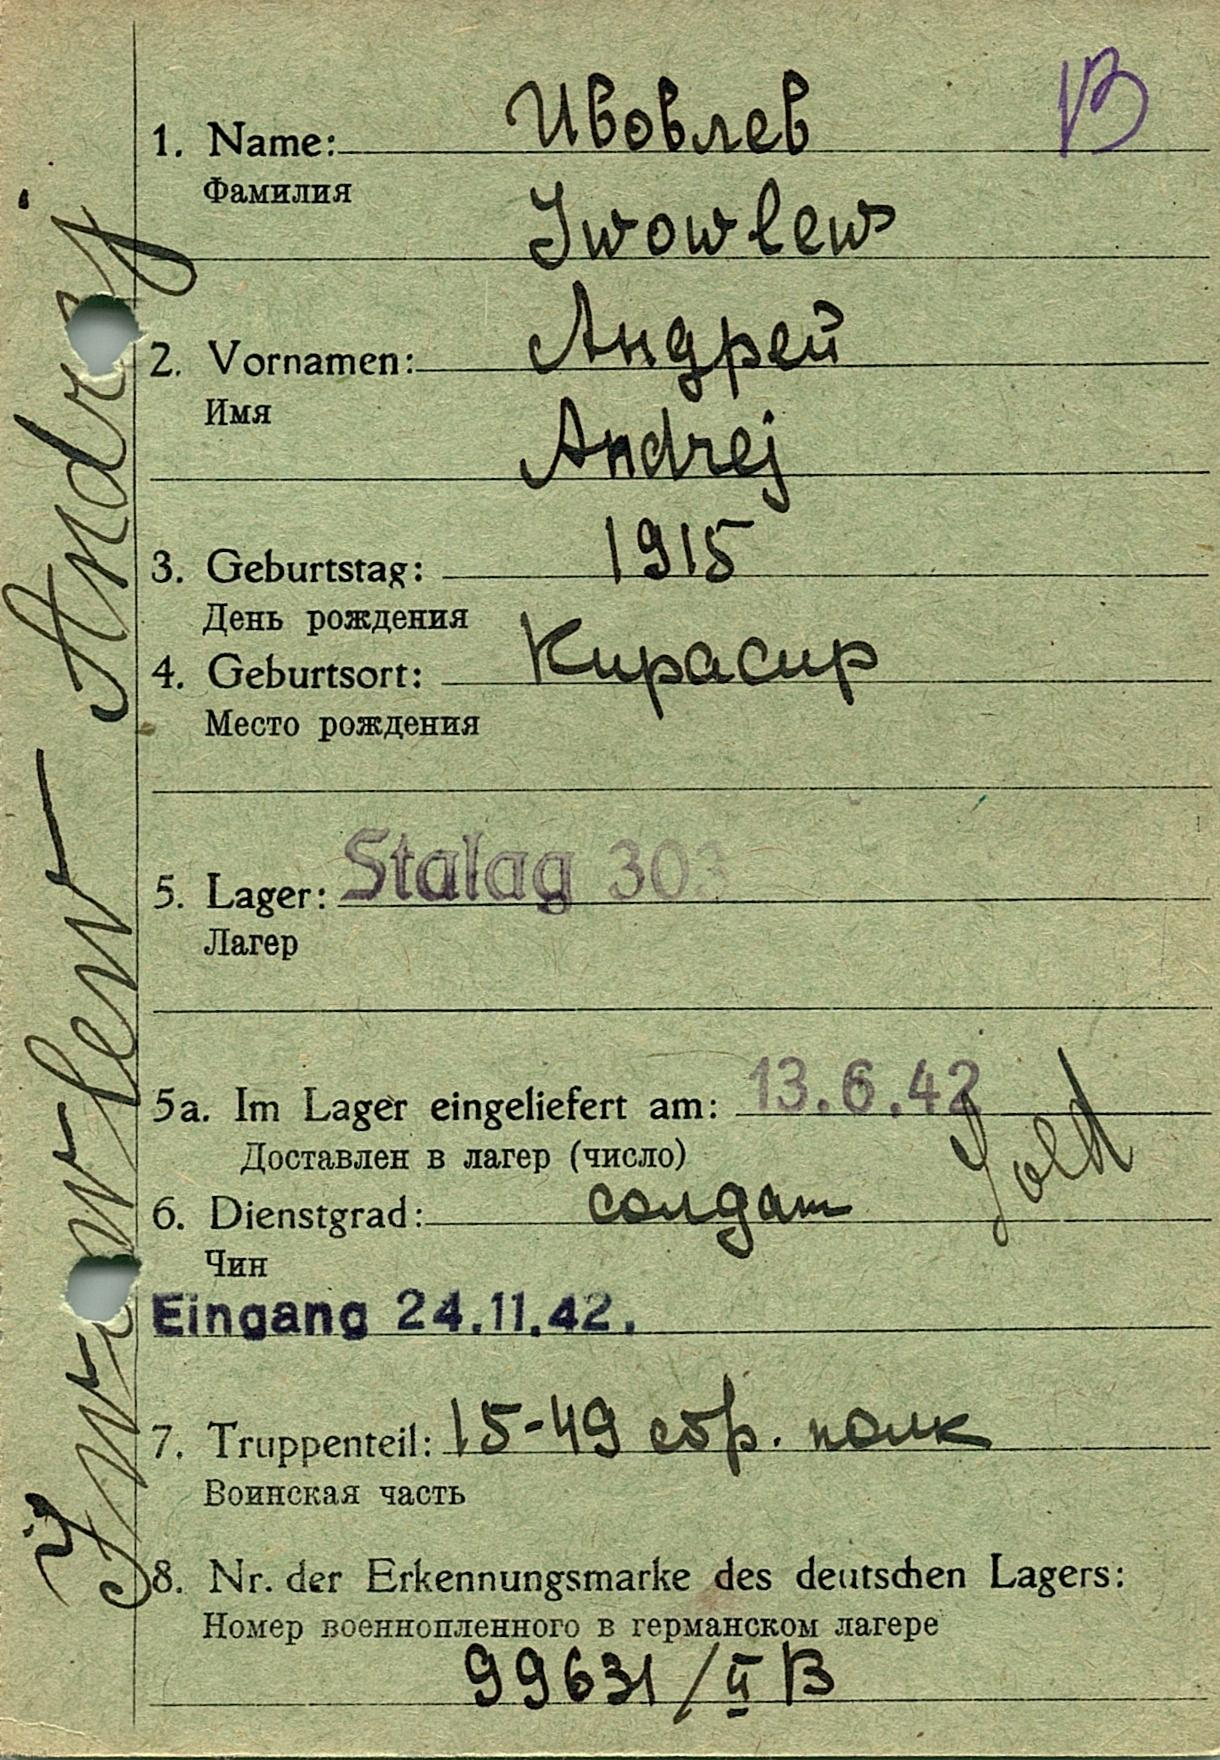 B
1. Name: Ивовлев
Фамилия
Iwowlew
2. Vornamen: Андрей
Имя
Andrej
3. Geburtstag: 1915
День рождения
4. Geburtsort: Кирасир
Место рождения
5. Lager: Stalag 303
Лагер
5a. Im Lager eingeliefert am: 13.6.42
Доставлен в лагер (число)
Sold
6. Dienstgrad: солдат
Чин
Eingang 24.11.42.
7. Truppenteil: 15-49 стр. полк
Воинская часть
8. Nr. der Erkennungsmarke des deutschen Lagers:
Номер военнопленного в германском лагере
99631/II B
Iwowlew Andrej